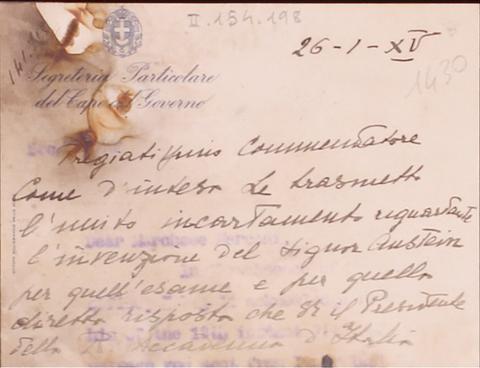 II. 154. 198
26-1-XV
1430
Segreteria Particolare
del Capo del Governo
Pregiatissimo Commendatore
Come d'inteso Le trasmetto
l'unito incartamento riguardante
l'invenzione del Signor Austein
per quell'esame e per quella
diretta risposta che S.E. il Presidente
della R. Accademia d'Italia